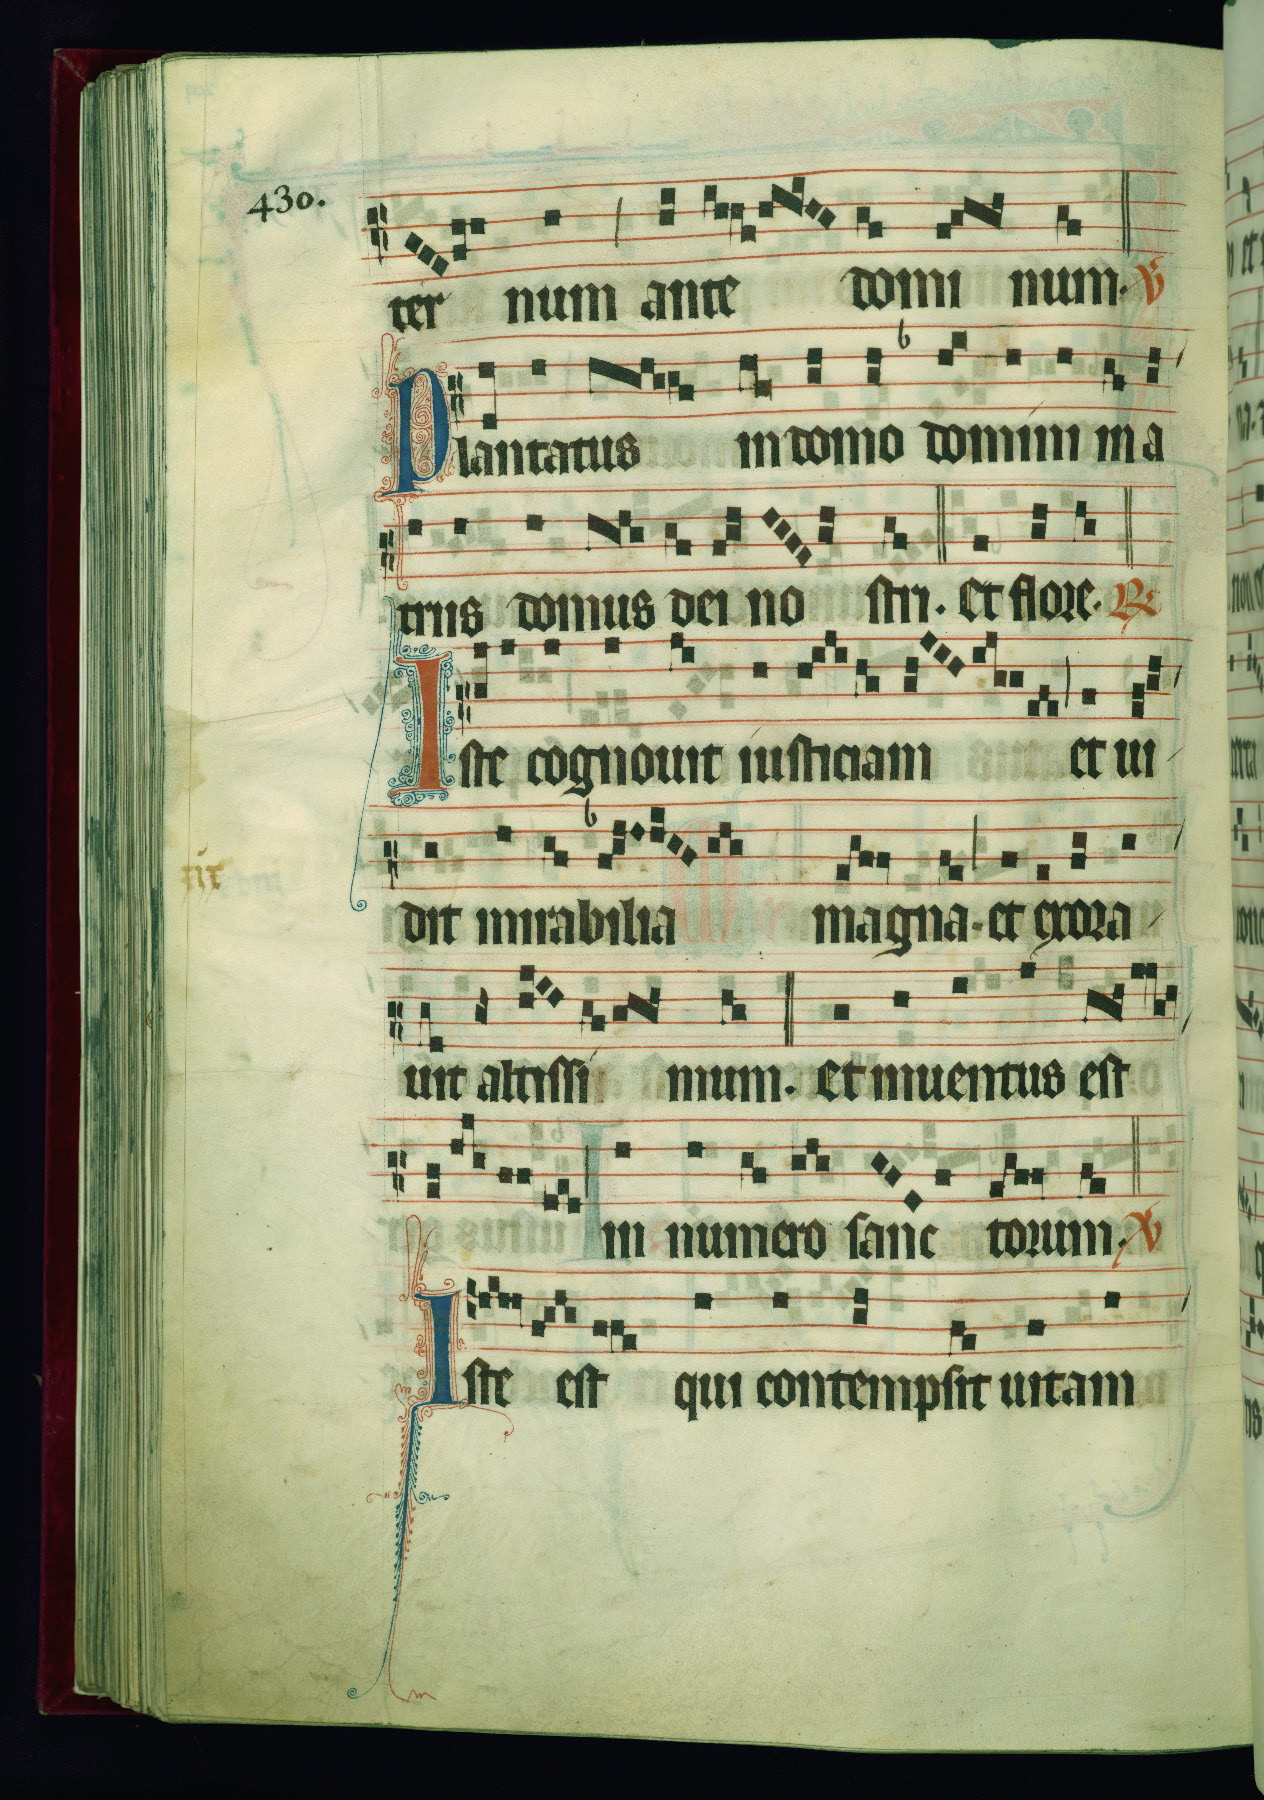 430.
ter num ante domi num. V
Plantatus in domo domini in a
triis domus dei no stri. Et flore. R
Iste cognouit iusticiam et ui
dit mirabilia magna. et exora
uit altissi mum. Et inuentus est
in numero sanc torum. V
Iste est qui contempsit uitam